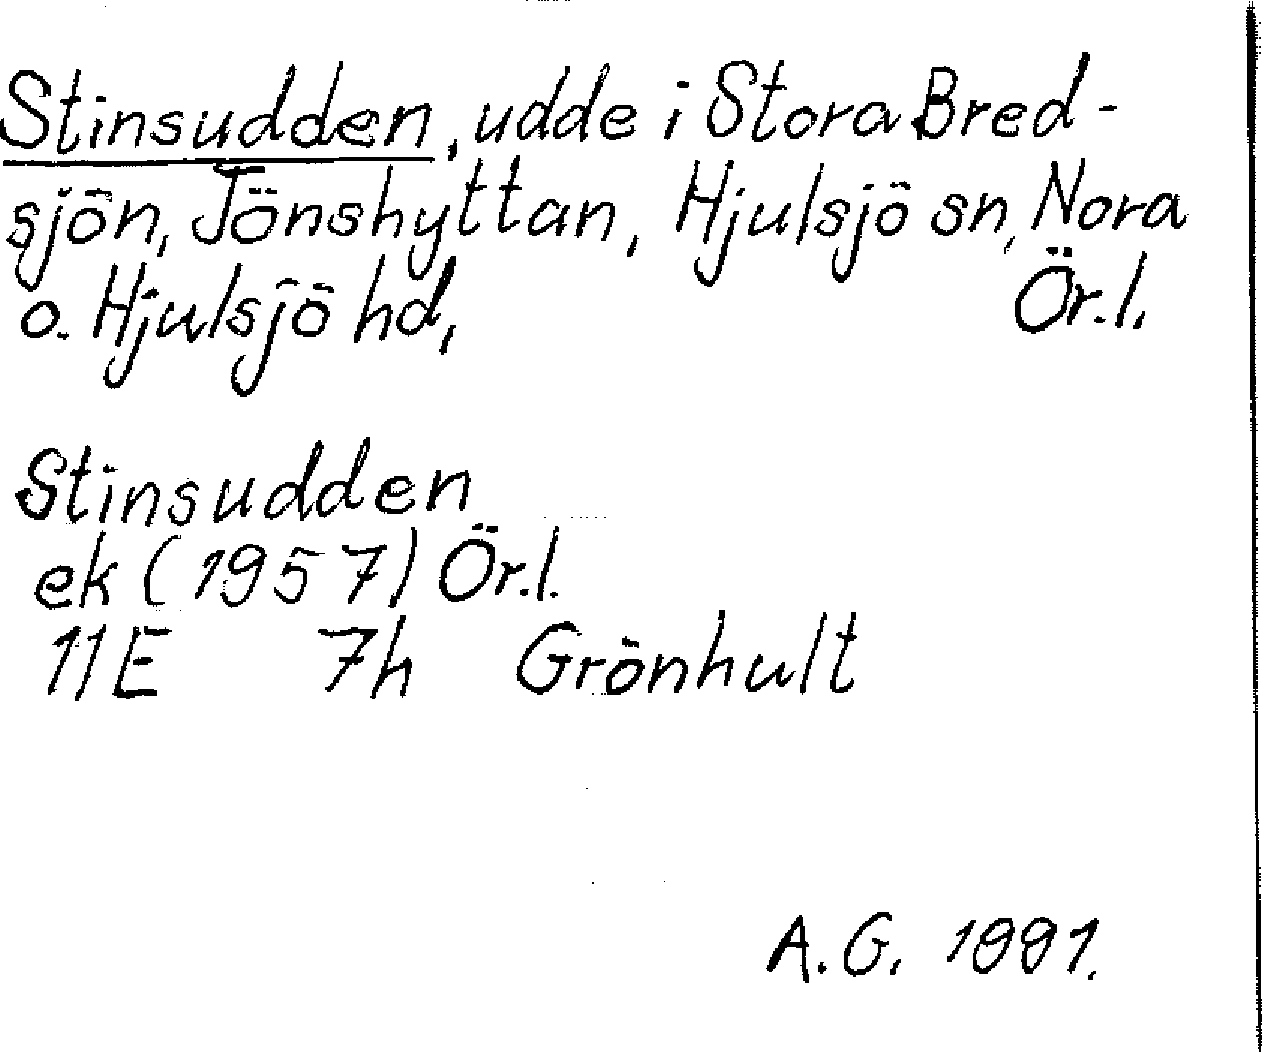 Stinsudden, udde i Stora Bred-
sjön, Jönshyttan, Hjulsjö sn, Nora
o. Hjulsjö hd, Ör.l.
Stinsudden
ek (1957) Ör.l.
11E 7h Grönhult
A.G. 1991.